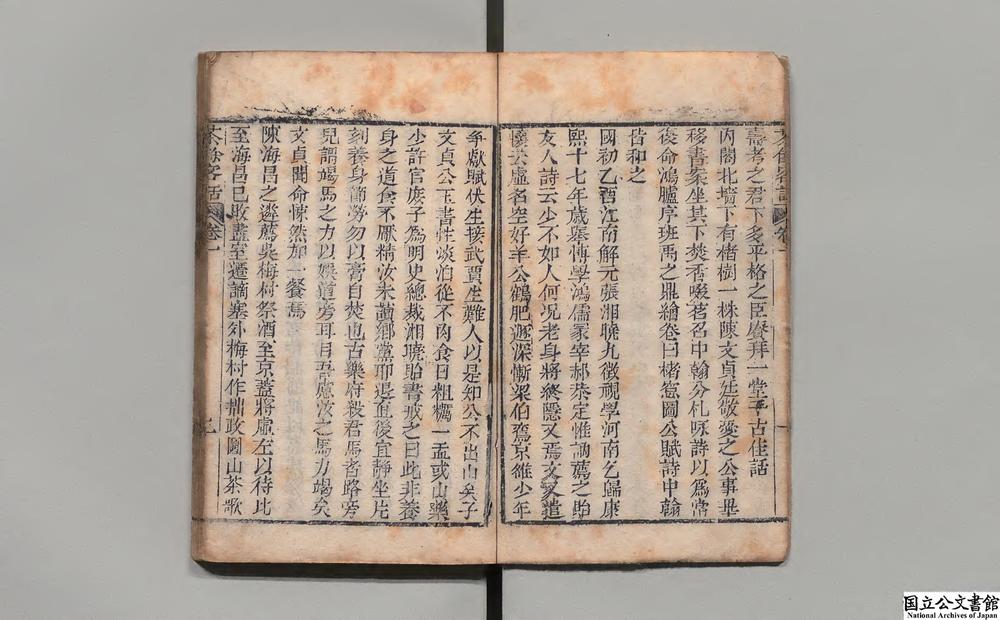 壽考之君下多平格之臣賡拜一堂千古佳話
內閣北墻下有楮樹一株陳文貞廷敬愛之公事畢
移書案坐其下焚香啜茗召中翰分札咏詩以為常
後命鴻臚序班禹之鼎繪卷曰楮窓圖公賦詩中翰
皆和之
國初乙酉江南解元張湘曉九徵視學河南乞歸康
熙十七年歲舉博學鴻儒冢宰郝恭定惟訥薦之貽
友人詩云少不如人何况老身將終隱又焉文又遣
懷云虛名空好羊公鶴肥遯深慚梁伯鸞京雒少年
爭獻賦伏生接武賈生難人以是知公不出山矣子
文貞公玉書性淡泊從不肉食日粗糲一盂或山藥
少許官庶子為明史總裁湘曉貽書戒之曰此非養
身之道食不厭精汝未讀鄉黨耶退直後宜靜坐片
刻養身節勞勿以膏自焚也古樂府殺君馬者路旁
兒謂竭馬之力以娛道旁耳目吾慮汝之馬力竭矣
文貞聞命悚然加一餐焉
陳海昌之遴薦吳梅村祭酒至京蓋將虛左以待比
至海昌已敗盡室遷謫塞外梅村作拙政園山茶歌
茶餘客話 卷一
国立公文書館
National Archives of Japan